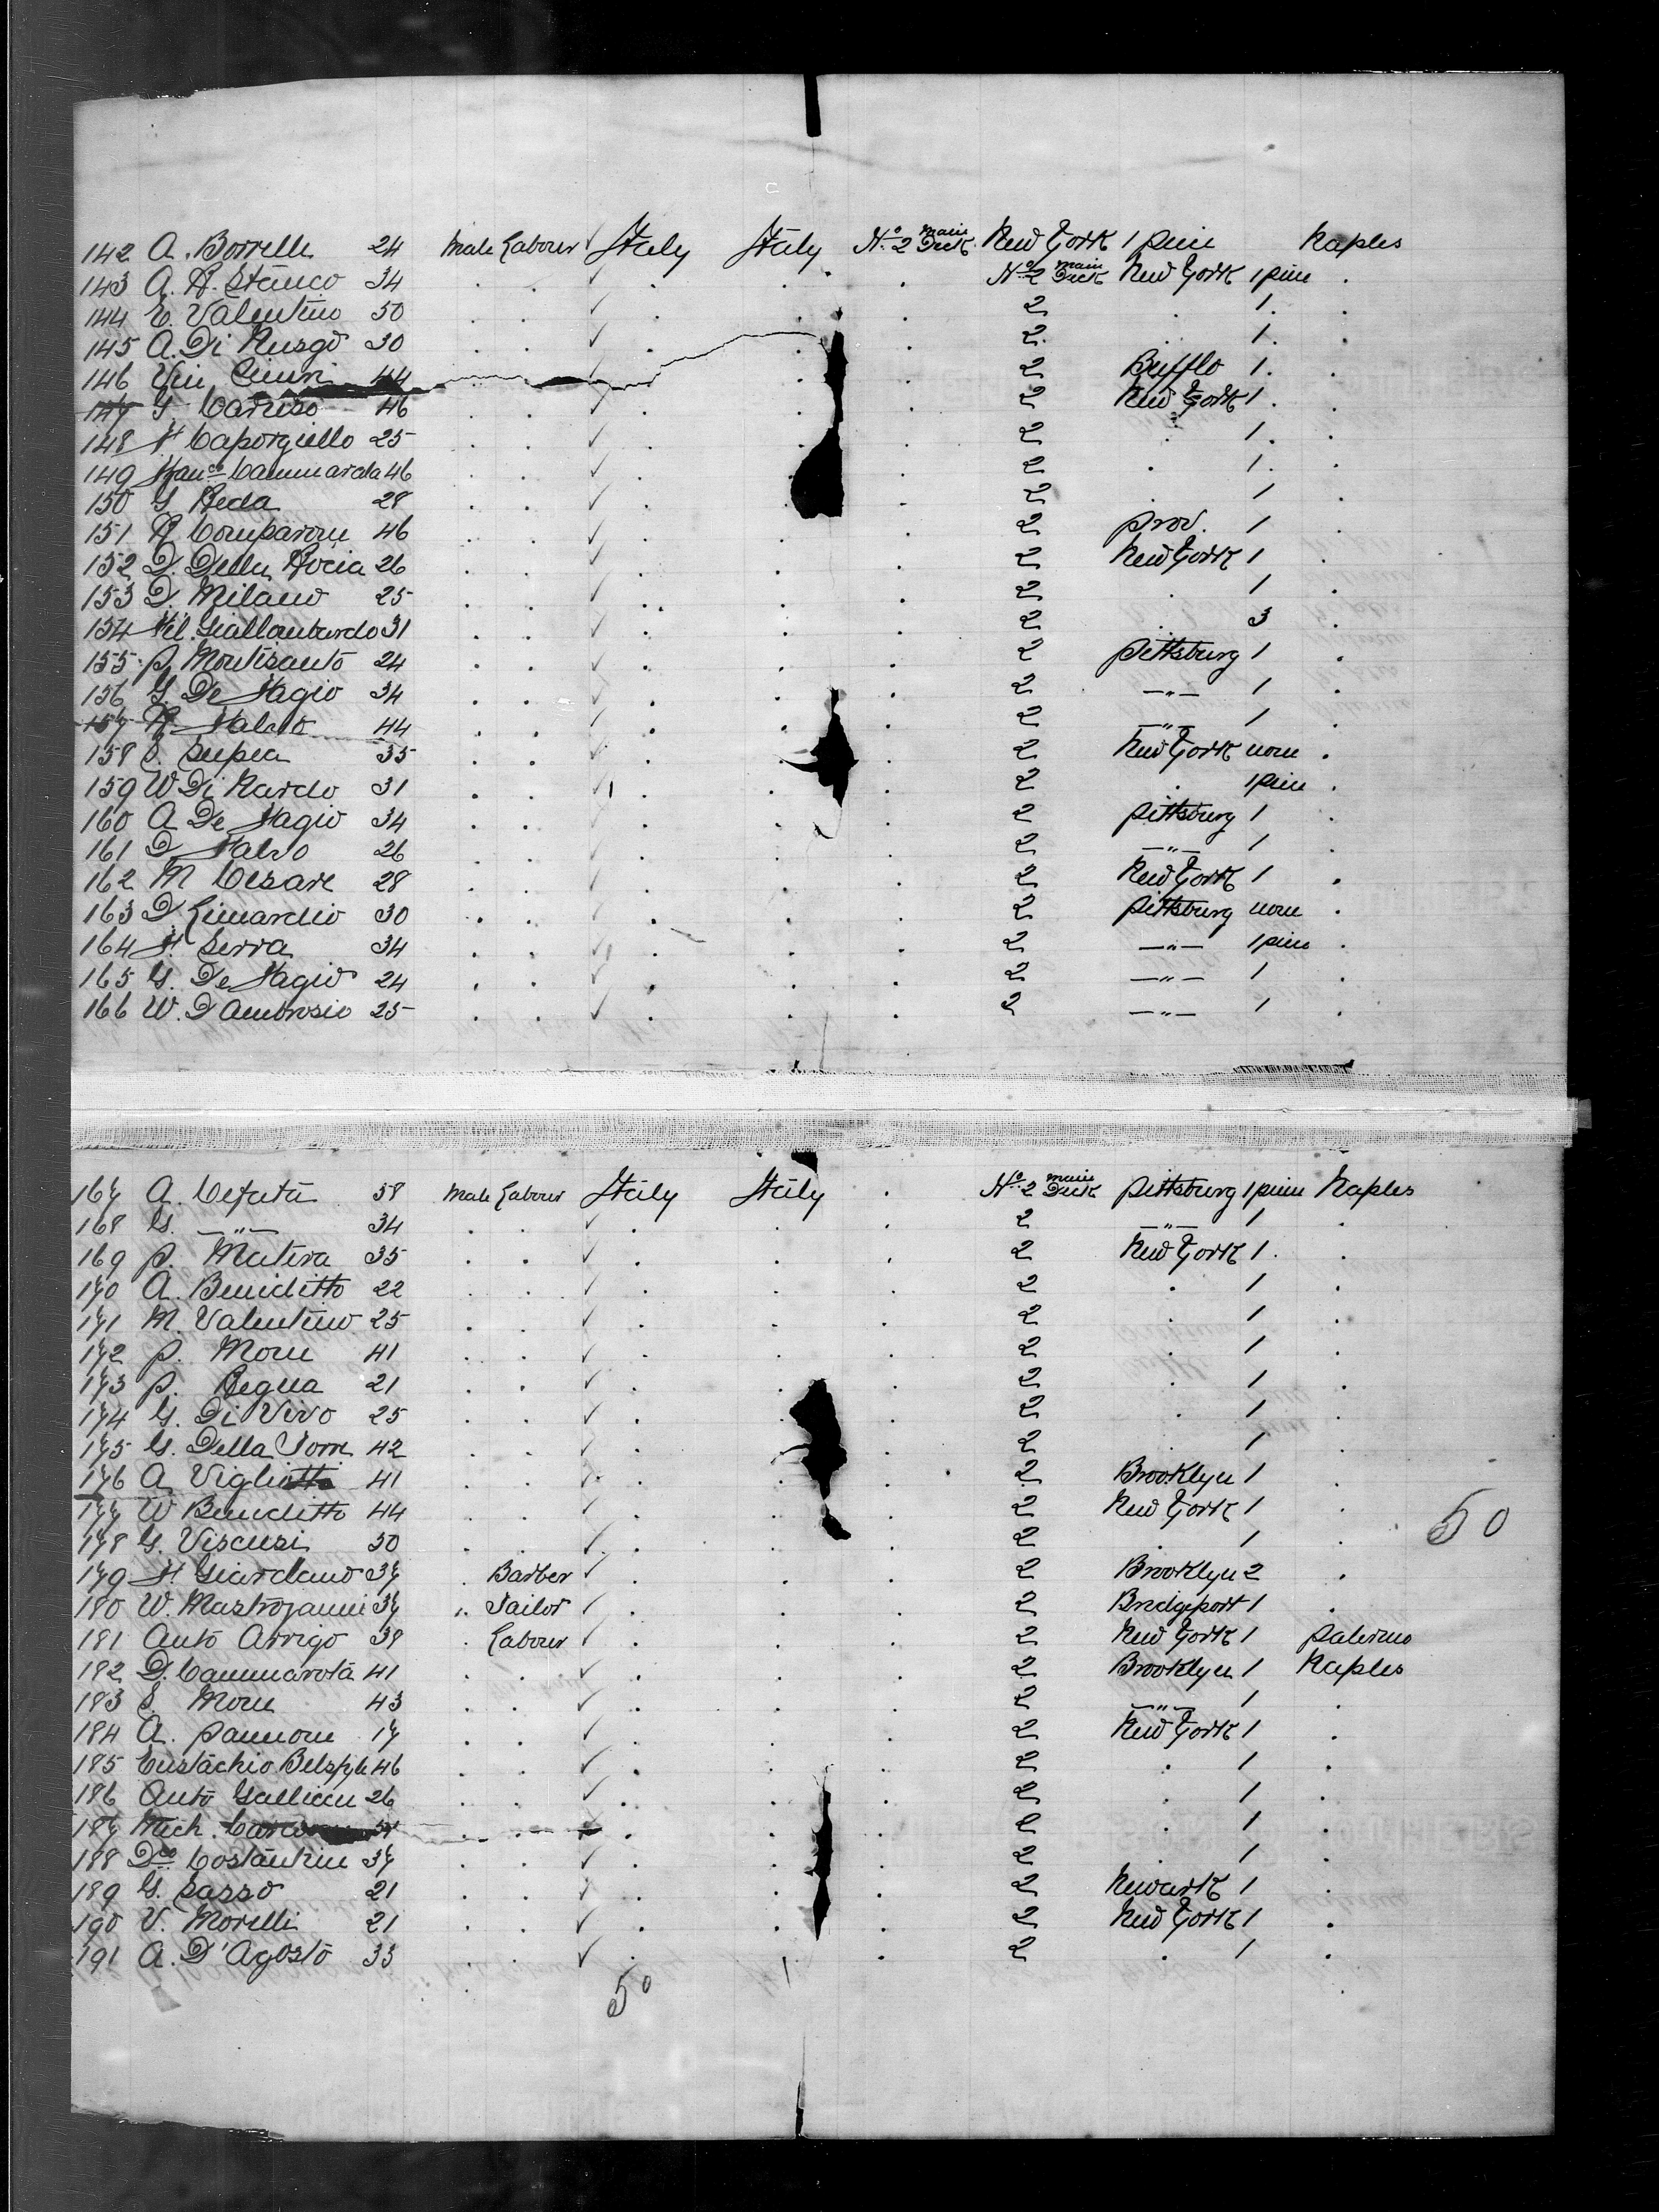 142 A. Borrelli 24 Male Labour ✓ Italy Italy No. 2 Main Deck New York 1 piece Naples
143 A. R. Stanco 34 . . ✓ . . . No. 2 Main Deck New York 1 piece .
144 E. Valentino 50 . . ✓ . . . 2 . 1. .
145 A. Di 30 . . ✓ . . . 2 . 1. .
146 44 . . ✓ . . . 2 Bufflo 1. .
147 G. Caruso 46 . . ✓ . . . 2 New York 1. .
148 Caporgiello 25 . . ✓ . . . 2 . 1. .
149 Cammarda 46 . . ✓ . . . 2 . 1. .
150 G. Reda 28 . . ✓ . . 2 . 1 .
151 R. Comparone 46 . . ✓ . . . 2 Prov. 1 .
152 D. Della Rocia 26 . . ✓ . . . 2 New York 1 .
153 D. Milano 25 . . ✓ . . . 2 . 1 .
154 31 . . ✓ . . . 2 . 3 .
155 P. Montisanto 24 . . ✓ . . . 2 Pittsburg 1 .
156 G. De Fagio 34 . . ✓ . . . 2 —"— 1 .
157 R. Falvo 44 . . ✓ . . . 2 —"— 1 .
158 35 . . ✓ . . . 2 New York none .
159 W Di Nardo 31 . . ✓ . . . 2 . 1 piece .
160 A De Fagio 34 . . ✓ . . . 2 Pittsburg 1 .
161 D Falvo 26 . . ✓ . . . 2 —"— 1 .
162 M Cesare 28 . . ✓ . . . 2 New York 1 .
163 D. 30 . . ✓ . . . 2 Pittsburg none .
164 F. Serra 34 . . ✓ . . . 2 —"— 1 piece .
165 G. De Fagio 24 . . ✓ . . . 2 —"— 1 .
166 W. D'Ambrosio 25 . . ✓ . . . 2 —"— 1 .
167 A. Cefuta 58 Male Labour Italy Italy . No. 2 Main Deck Pittsburg 1 piece Naples
168 G. —"— 34 . . ✓ . . . 2 —"— 1 .
169 P. Matera 35 . . ✓ . . . 2 New York 1. .
170 A. Beneditto 22 . . ✓ . . . 2 . 1 .
171 M. Valentino 25 . . ✓ . . . 2 . 1 .
172 P. Mone 41 . . ✓ . . . 2 . 1 .
173 P. Regna 21 . . ✓ . . . 2 . 1 .
174 G. Di Vivo 25 . . ✓ . . . 2 . 1 .
175 G. Della Torre 42 . . ✓ . . . 2 . 1 .
176 A. Vigliotti 41 . . ✓ . . . 2 Brooklyn 1 .
177 W Beneditto 44 . . ✓ . . . 2 New York 1 .
50
178 G. Viscusi 30 . . ✓ . . . 2 . 1 .
179 F. Giordano 37 . Barber ✓ . . . 2 Brooklyn 2 .
180 W. Mastrojanni 37 " Tailor ✓ . . . 2 Bridgeport 1 .
181 Anto Arrigo 38 . Labour ✓ . . . 2 New York 1 Palermo
182 D. Cammarota 41 . . ✓ . . . 2 Brooklyn 1 Naples
183 S. Mone 43 . . ✓ . . . 2 —"— 1 .
184 A. Pannone 17 . . ✓ . . . 2 New York 1 .
185 Eustachio 46 . . ✓ . . . 2 . 1 .
186 Anto 26 . . ✓ . . . 2 . 1 .
187 Mich. . . . . . 2 . 1 .
188 Dco Costantini 37 . . ✓ . . . 2 . 1 .
189 G. Sasso 21 . . ✓ . . . 2 Newark 1 .
190 V. Morelli 21 . . ✓ . . . 2 New York 1 .
191 A. D'Agosto 33 . . ✓ . . . 2 . 1 .
50